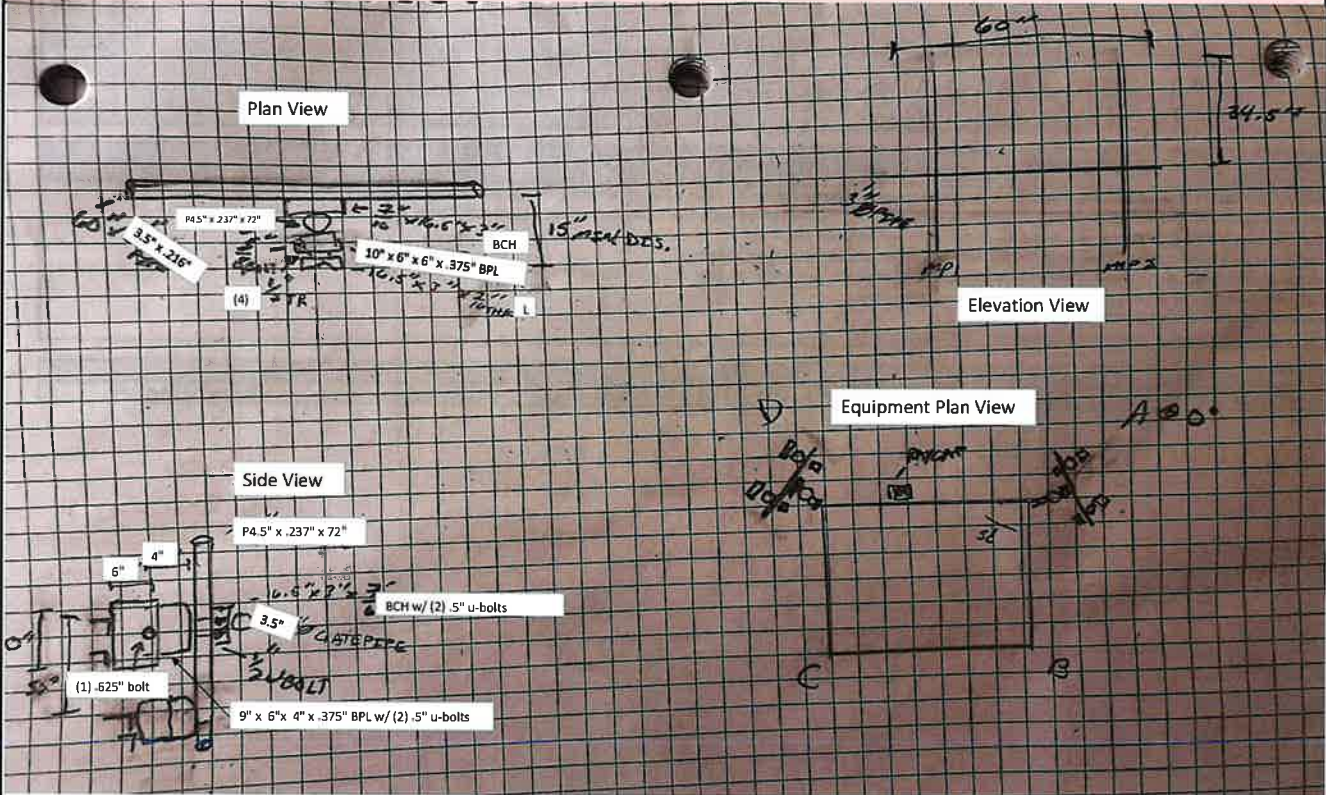 60"
34.5"
Plan View
60"
P4.5" x .237" x 72"
3.5" x .216"
BCH
15" MIN DIS.
10" x 6" x 6" x .375" BPL
16.5" x 3" x
(4)
TR
L
MP1
MP2
Elevation View
D
Equipment Plan View
A @ 0°
Side View
P4.5" x .237" x 72"
4"
6"
16.5" x 3" x
BCH w/ (2) .5" u-bolts
3.5"
GATEPIPE
1/2 UBOLT
(1) .625" bolt
9" x 6"x 4" x .375" BPL w/ (2) .5" u-bolts
C
B